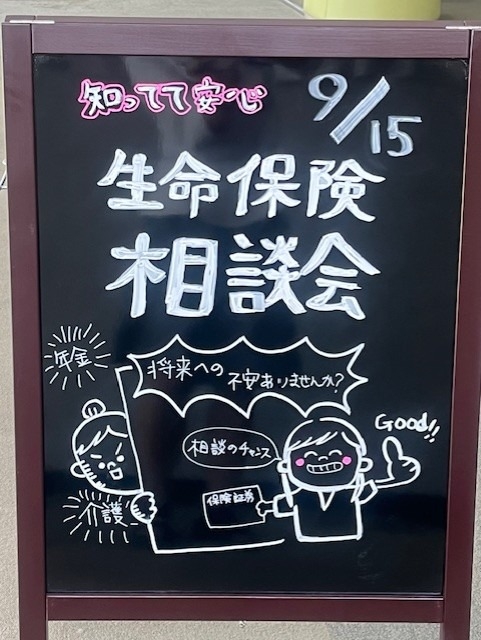 知ってて安心
9/15
生命保険
相談会
年金
将来への
不安ありませんか?
Good!!
相談のチャンス
保険証券
介護